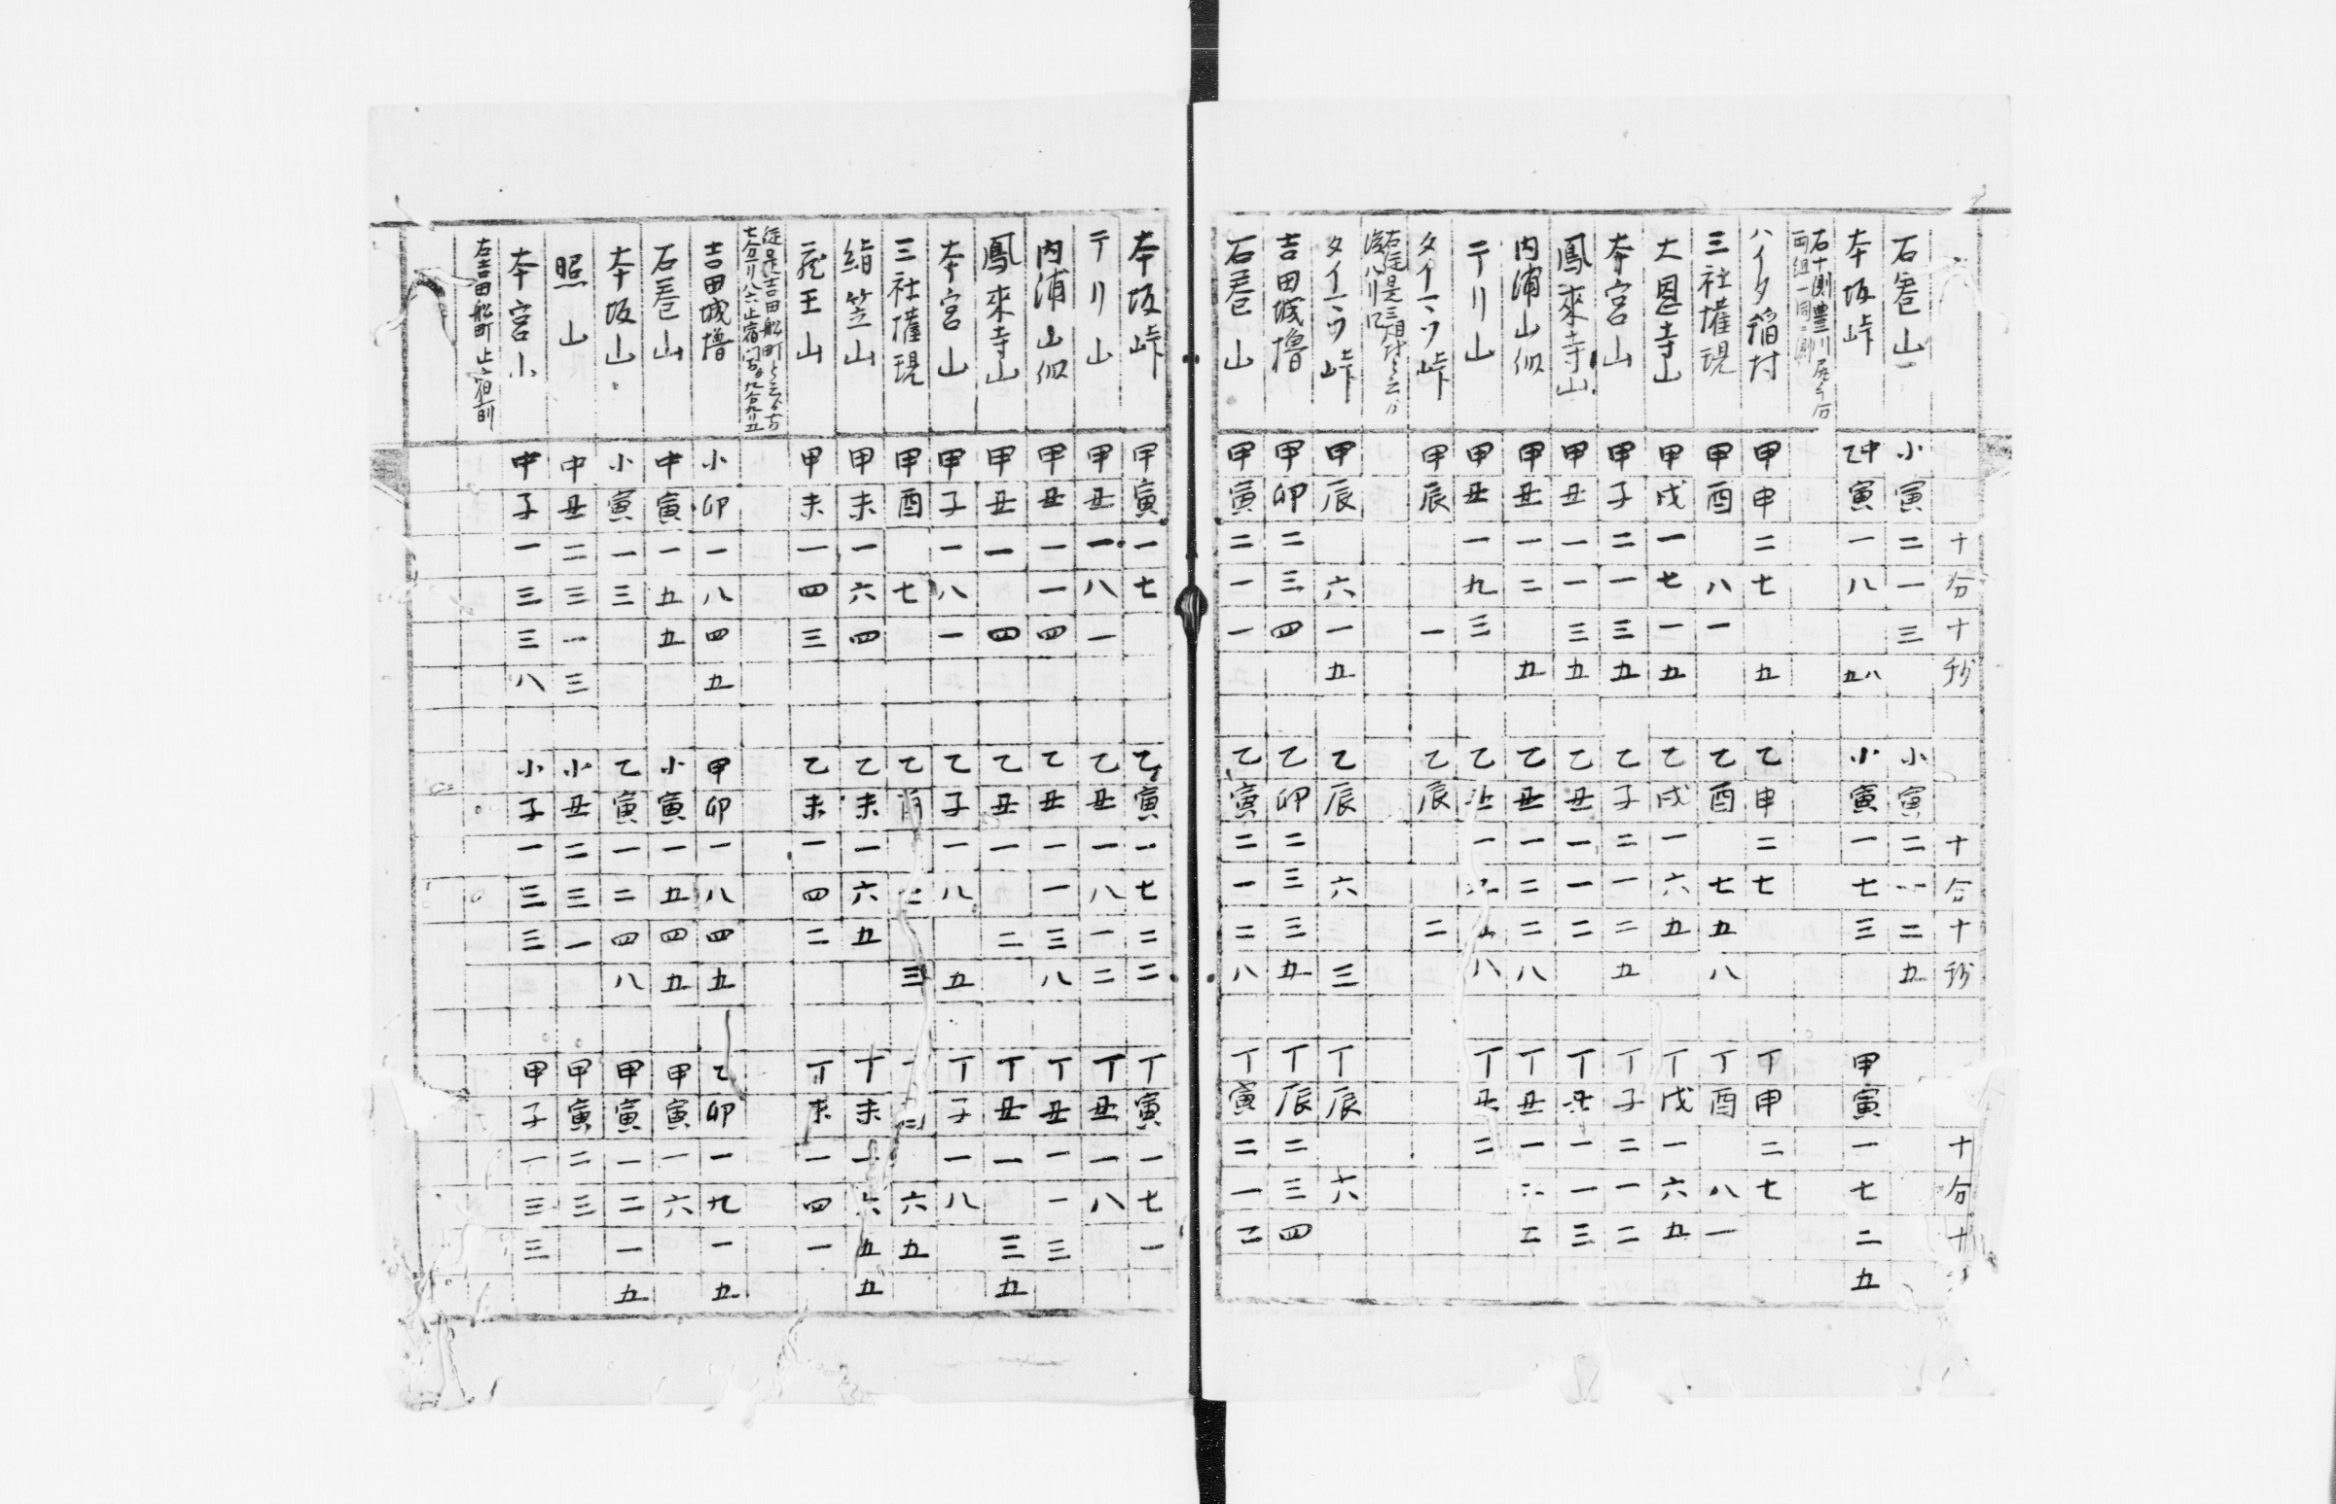 十分十秒 十分十秒 十分十
石巻山 小寅二一三 小寅二一二五
本坂峠 乙中寅一八 五八 小寅一七三 甲寅一七二五
右十側豊川尻
両組一同ニ測
ハイタ稲村 甲申二七 五 乙申二七 丁申二七
三社権現 甲酉 八一 乙酉 七五八 丁酉 八一
大恩寺山 甲戌一七一五 乙戌一六五 丁戌一六五
本宮山 甲子二一三五 乙子二一二五 丁子二一二
鳳来寺山 甲丑一一三五 乙丑一一二 丁丑一一三
内浦山似 甲丑一二 五 乙丑一二二八 丁丑一
テリ山 甲丑一九三 乙丑一 八 丁丑二
タイマツ峠 甲辰 一 乙辰 二
タイマツ峠 甲辰 六一五 乙辰 六 三 丁辰 六
吉田城櫓 甲卯二三四 乙卯二三三五 丁辰二三四
石巻山 甲寅二一一 乙寅二一二八 丁寅二一二
本坂峠 甲寅一七 乙寅一七二二 丁寅一七一
テリ山 甲丑一八一 乙丑一八一二 丁丑一八
内浦山似 甲丑一一四 乙丑一一三八 丁丑一一三
鳳来寺山 甲丑一 四 乙丑一 二 丁丑一 三五
本宮山 甲子一八一 乙子一八 五 丁子一八
三社権現 甲酉 七 乙 三 六五
絹笠山 甲未一六四 乙未一六五 丁未一六五五
龍王山 甲未一四三 乙未一四二 丁未一四一
従是吉田船町ト云
止宿
吉田城櫓 小卯一八四五 甲卯一八四五 乙卯一九一五
石巻山 中寅一五五 小寅一五四五 甲寅一六
本坂山 小寅一三 乙寅一二四八 甲寅一二一五
照山 中丑二三一三 小丑二三一 甲寅二三
本宮山 中子一三三八 小子一三三 甲子一三三
右吉田船町止宿前